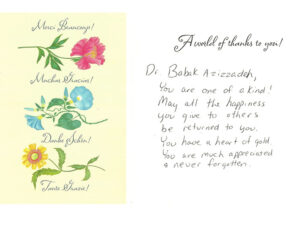 Merci Beaucoup!
Muchas Gracias!
Danke Schön!
Tante Grazie!
A world of thanks to you!
Dr. Babak Azizzadeh,
You are one of a kind!
May all the happiness
you give to others
be returned to you.
You have a heart of gold.
You are much appreciated
& never forgotten.